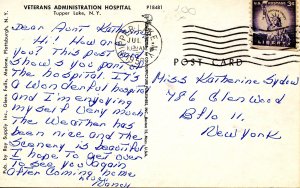 VETERANS ADMINISTRATION HOSPITAL
Tupper Lake, N.Y.
P18481
Dear Aunt Katherine
Hi! How are
you? This post card
shows you part of
the hospital. It's
a wonderful hospital
and I'm enjoying
myself very much
The Weather has
been nice and the
Scenery is beautiful
I hope to get over
to see you again
after Coming home
Love
POST CARD
Miss Katherine Sydow
786 Glenwood
Bflo 11.
New York
U.S. POSTAGE
3¢
LIBERTY
JUL